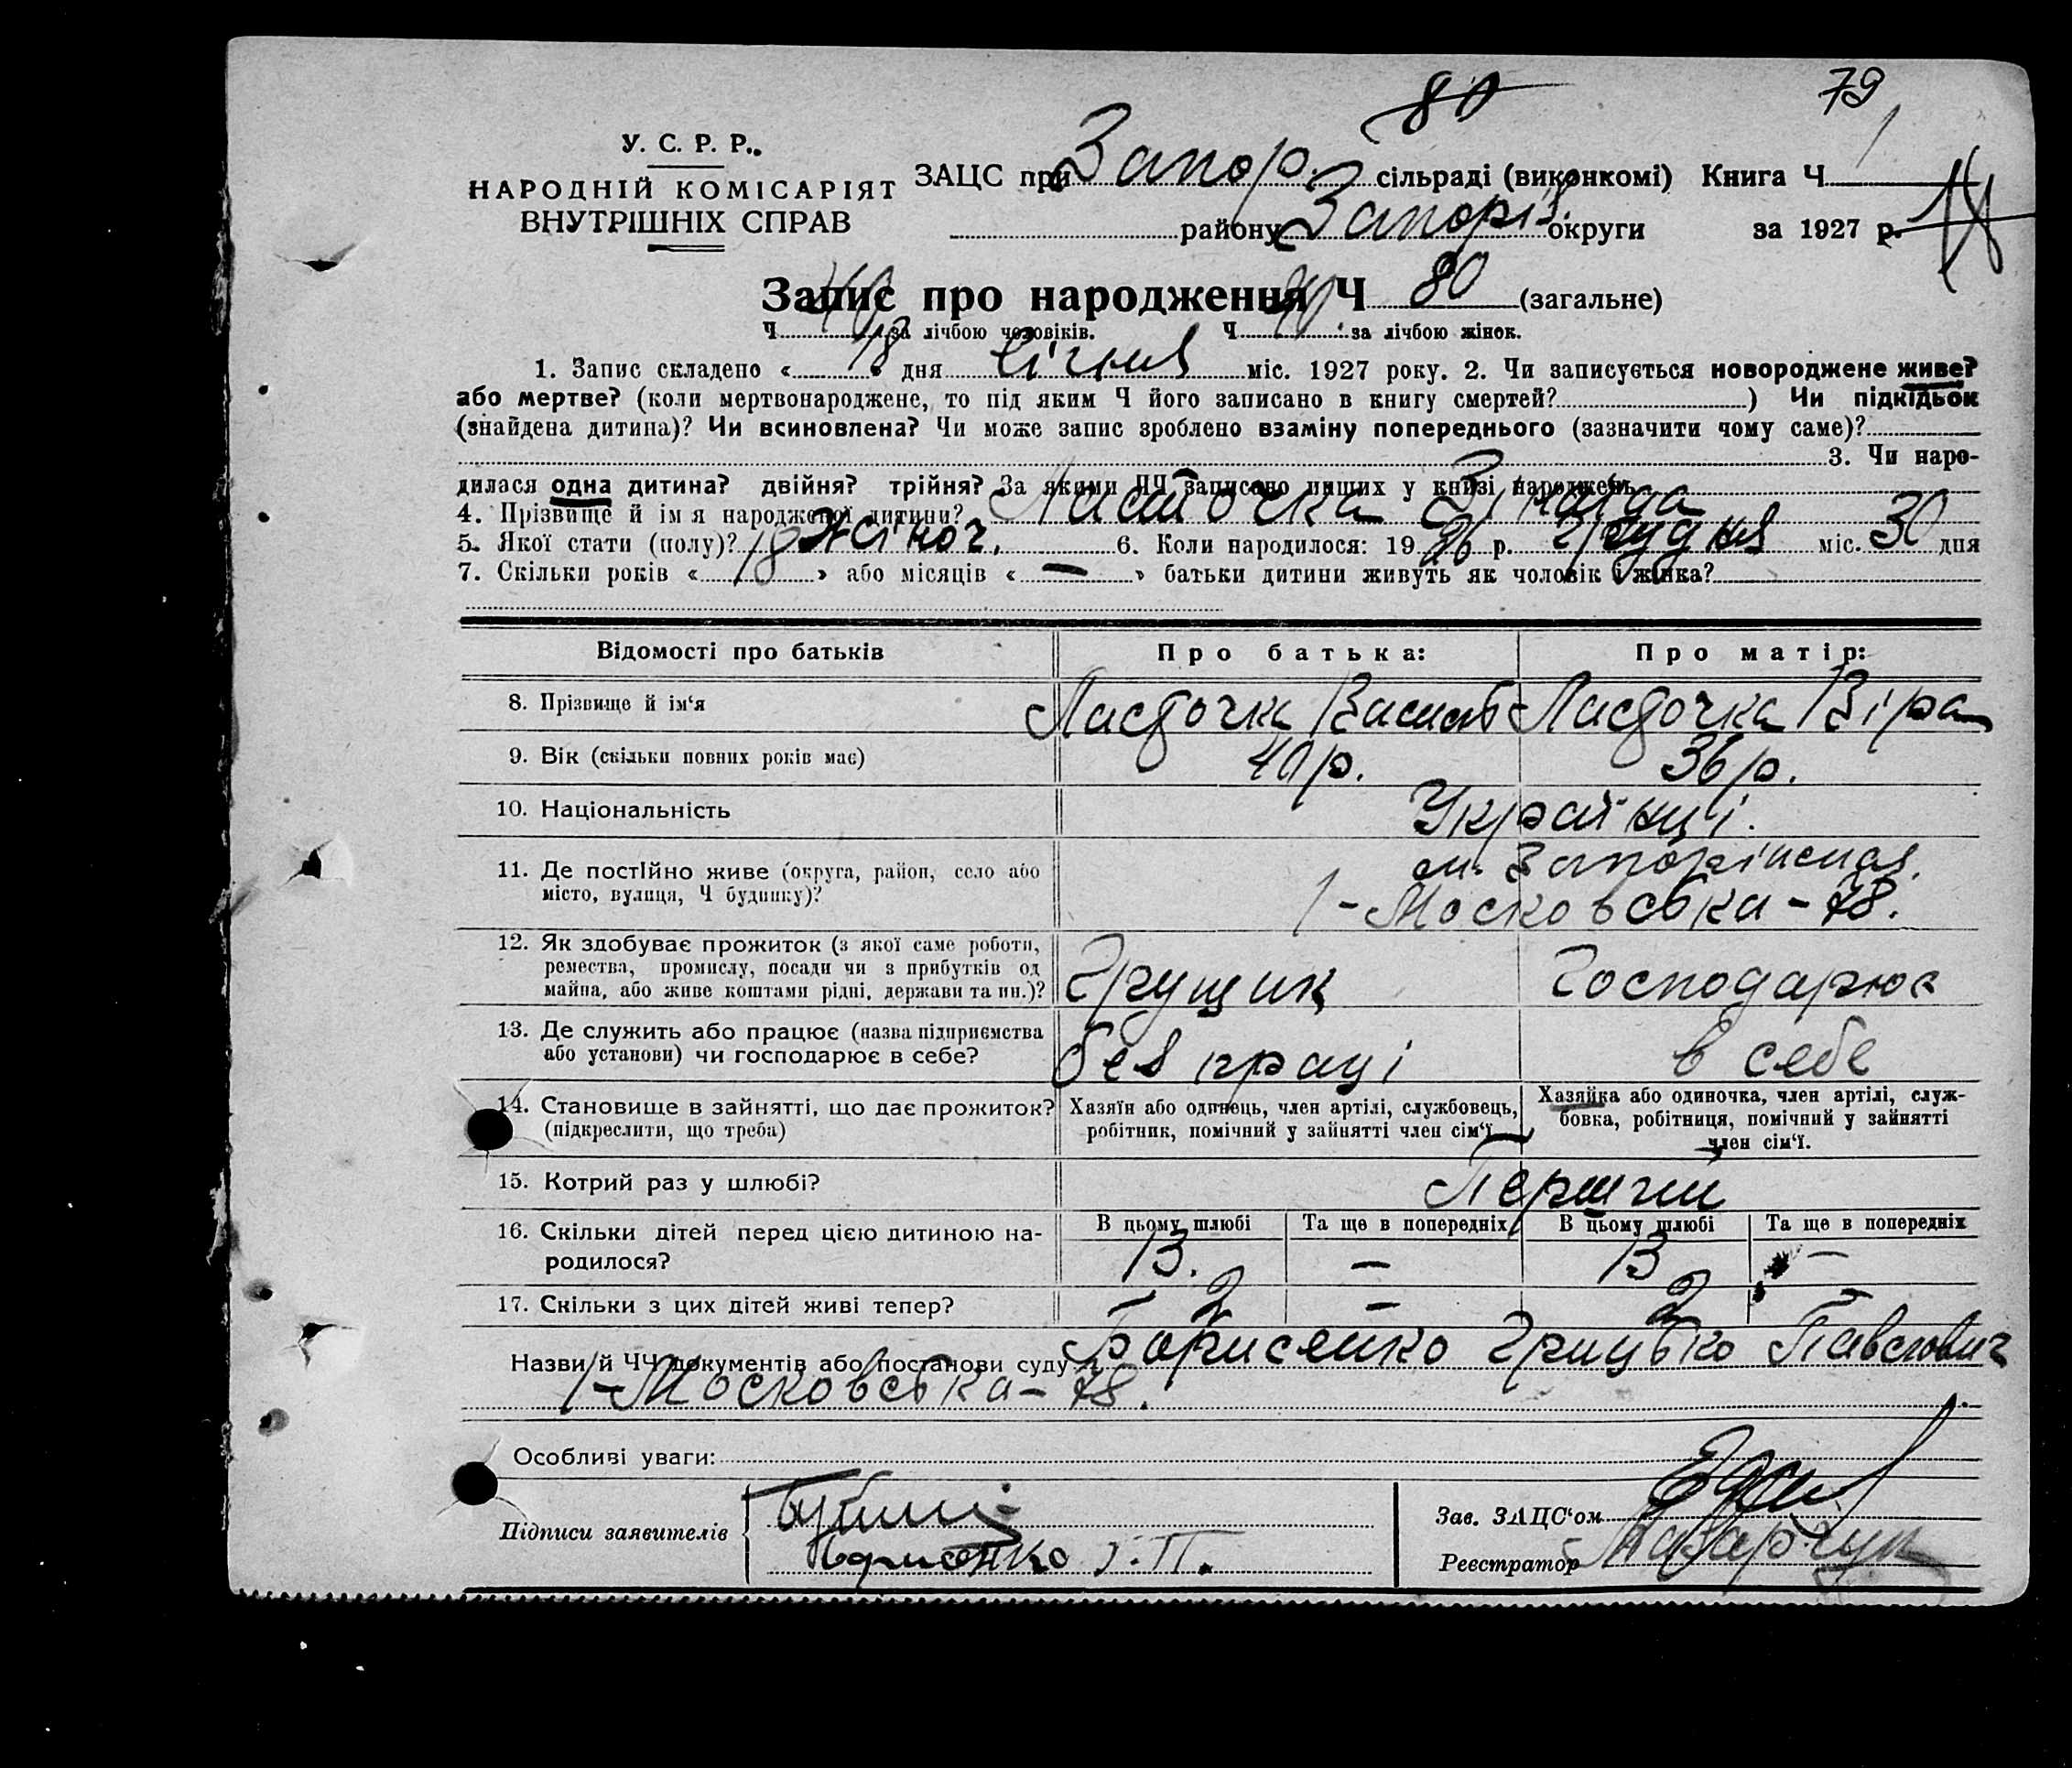 80 79
У. С. Р. Р.
НАРОДНІЙ КОМІСАРІЯТ
ВНУТРІШНІХ СПРАВ
ЗАЦС при Запор. сільраді (виконкомі) Книга Ч 1
району Запоріз. округи за 1927 р.
Запис про народження Ч 80 (загальне)
Ч 40 за лічбою чоловіків. Ч 40 за лічбою жінок.
1. Запис складено « 18 » дня Січня міс. 1927 року. 2. Чи записується новороджене живе?
або мертве? (коли мертвонароджене, то під яким Ч його записано в книгу смертей? ) Чи підкідьок
(знайдена дитина)? Чи всиновлена? Чи може запис зроблено взаміну попереднього (зазначити чому саме)?
3. Чи наро-
дилася одна дитина? двійня? трійня? За якими ЧЧ записано инших у книзі народжень
4. Прізвище й ім я народженої дитини? Ласточка Зінаїда
5. Якої стати (полу)? Жіноч. 6. Коли народилося: 1926 р. Грудня міс. 30 дня
7. Скільки років « 18 » або місяців « — » батьки дитини живуть як чоловік і жінка?
Відомості про батьків Про батька: Про матір:
8. Прізвище й ім‘я Ласточка Василь Ласточка Віра
9. Вік (скільки повних років має) 40 р. 36 р.
10. Національність Українці.
11. Де постійно живе (округа, район, село або м. Запоріжжя,
місто, вулиця, Ч будинку)? 1-Московська-78.
12. Як здобуває прожиток (з якої саме роботи,
ремества, промислу, посади чи з прибутків од
майна, або живе коштами рідні, держави та ин.)? Грущик Господарює
13. Де служить або працює (назва підприємства
або установи) чи господарює в себе? без праці в себе
14. Становище в зайнятті, що дає прожиток? Хазяїн або одинець, член артілі, службовець, Хазяйка або одиночка, член артілі, служ-
(підкреслити, що треба) робітник, помічний у зайнятті член сім‘ї бовка, робітниця, помічний у зайнятті
член сім‘ї.
15. Котрий раз у шлюбі? Перший
16. Скільки дітей перед цією дитиною на- В цьому шлюбі Та ще в попередніх В цьому шлюбі Та ще в попередніх
родилося? 13. — 13 —
17. Скільки з цих дітей живі тепер? 2 — 2 —
Назви й ЧЧ документів або постанови суду Борисенко Грицько Павлович
1-Московська-78.
Особливі уваги:
Підписи заявителів Борисенко Г. П.
Зав. ЗАЦС‘ом
Реєстратор